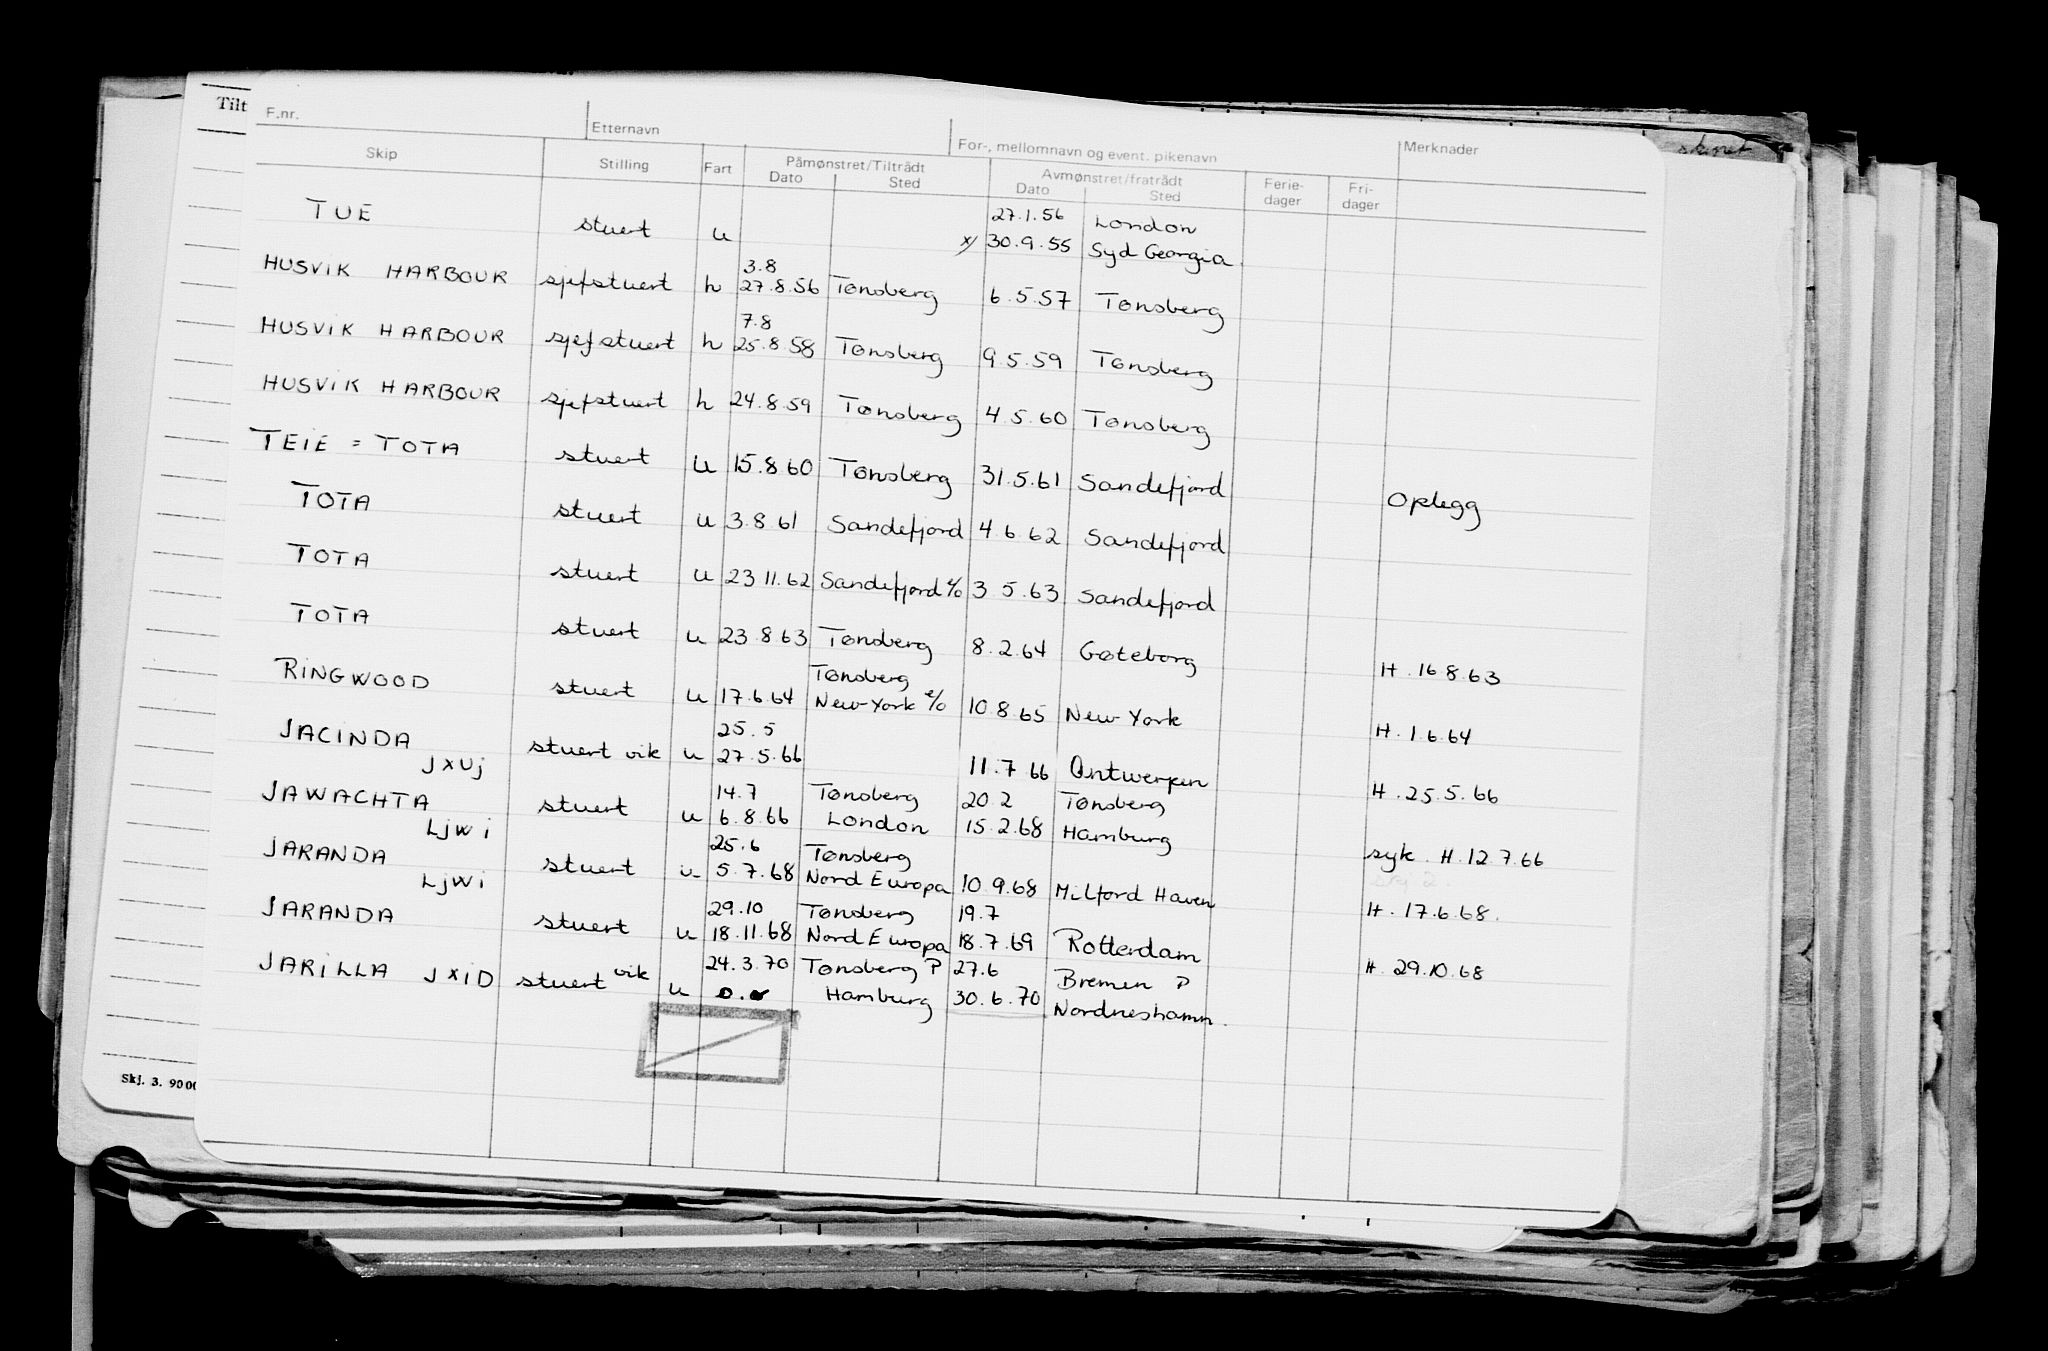 Tilt
F.nr. Etternavn For-, mellomnavn og event. pikenavn Merknader
Skip Stilling Fart Påmønstret/Tiltrådt Avmønstret/fratrådt Ferie- Fri-
Dato Sted Dato Sted dager dager
27.1.56 London
TUE stuert u x) 30.9.55 Syd Georgia
3.8
HUSVIK HARBOUR sjefstuert h 27.8.56 Tønsberg 6.5.57 Tønsberg
7.8
HUSVIK HARBOUR sjefstuert h 25.8.58 Tønsberg 9.5.59 Tønsberg
HUSVIK HARBOUR sjefstuert h 24.8.59 Tønsberg 4.5.60 Tønsberg
TEIE = TOTA stuert u 15.8.60 Tønsberg 31.5.61 Sandefjord Oplegg
TOTA stuert u 3.8.61 Sandefjord 4.6.62 Sandefjord
TOTA stuert u 23.11.62 Sandefjord e/o 3.5.63 Sandefjord
TOTA stuert u 23.8.63 Tønsberg 8.2.64 Gøteborg H. 16.8.63
Tønsberg
RINGWOOD stuert u 17.6.64 New York e/o 10.8.65 New York H. 1.6.64
25.5
JACINDA JXUJ stuert vik u 27.5.66 11.7.66 Antwerpen H. 25.5.66
14.7 Tønsberg 20.2 Tønsberg
JAWACHTA LJWI stuert u 6.8.66 London 15.2.68 Hamburg syk. H. 12.7.66
25.6 Tønsberg
JARANDA LJWI stuert u 5.7.68 Nord Europa 10.9.68 Milford Haven H. 17.6.68.
29.10 Tønsberg 19.7
JARANDA stuert u 18.11.68 Nord Europa 18.7.69 Rotterdam H. 29.10.68
24.3.70 Tønsberg P 27.6 Bremen P
JARILLA JXID stuert vik u Hamburg 30.6.70 Nordneshamn.
Skj. 3. 9000